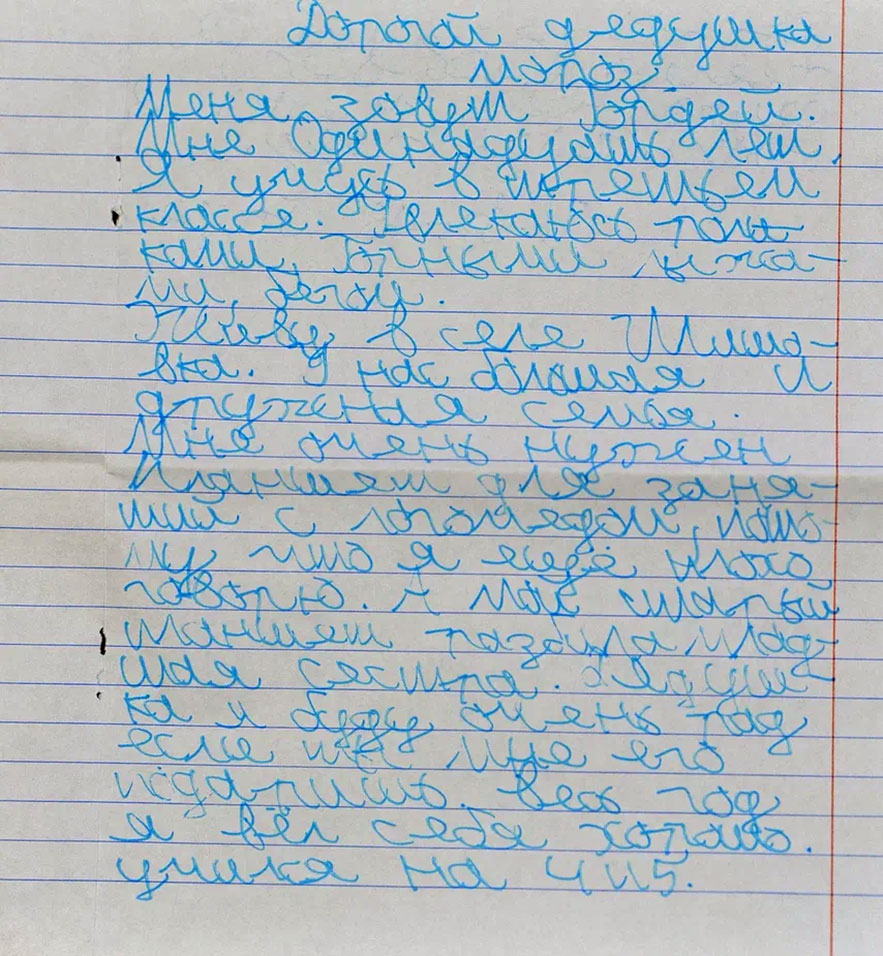 Дорогой дедушка
мороз
Меня зовут Гордей.
Мне Одинадцать лет,
Я учусь в третьем
классе. Увлекаюсь
ками, Горными лыжа-
ми, бегом.
Живу в селе
вка. У нас большая и
дружная семья.
Мне очень нужен
Планшет для заня-
тий с логопедом, пото-
му что я ещё плохо
говорю. А мой старый
планшет разбила млад-
шая сестра. Дедуш-
ка я буду очень рад
если ты мне его
подаришь. Весь год
я вёл себя хорошо.
учился на 4 и 5.